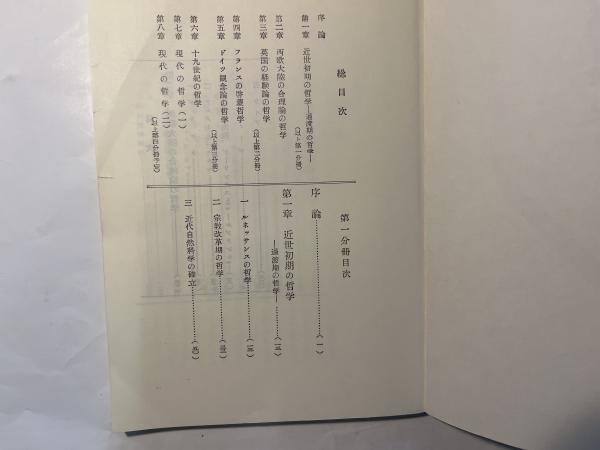 総目次
序論
第一章 近世初期の哲学―過渡期の哲学―
(以上第一分冊)
第二章 西欧大陸の合理論の哲学
第三章 英国の経験論の哲学
(以上第二分冊)
第四章 フランスの啓蒙哲学
第五章 ドイツ観念論の哲学
(以上第三分冊)
第六章 十九世紀の哲学
第七章 現代の哲学(一)
第八章 現代の哲学(二)
(以上第四分冊予定)
第一分冊目次
序論……………………(一)
第一章 近世初期の哲学
―過渡期の哲学―……………(三)
一 ルネッサンスの哲学……………
二 宗教改革期の哲学……………
三 近代自然科学の確立……………